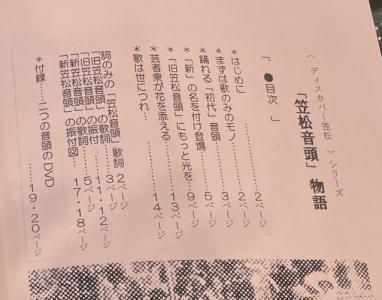 〈ディスカバー笠松〉シリーズ
「笠松音頭」物語
「●目次」
*はじめに………………2ページ
*まずは歌のみのモノ………2ページ
*踊れる「初代」音頭………3ページ
*「新」の名を付け登場………5ページ
*「旧笠松音頭」にもっと光を…9ページ
*芸者衆が花を添える………13ページ
*歌は世につれ………14ページ
詞のみの「笠松音頭」歌詞 2ページ
「旧笠松音頭」の歌詞………3ページ
「旧笠松音頭」の振付…11・12ページ
「新笠松音頭」の歌詞………5ページ
「新笠松音頭」の振付図…17・18ページ
*付録……二つの音頭のDVD
………19・20ページ